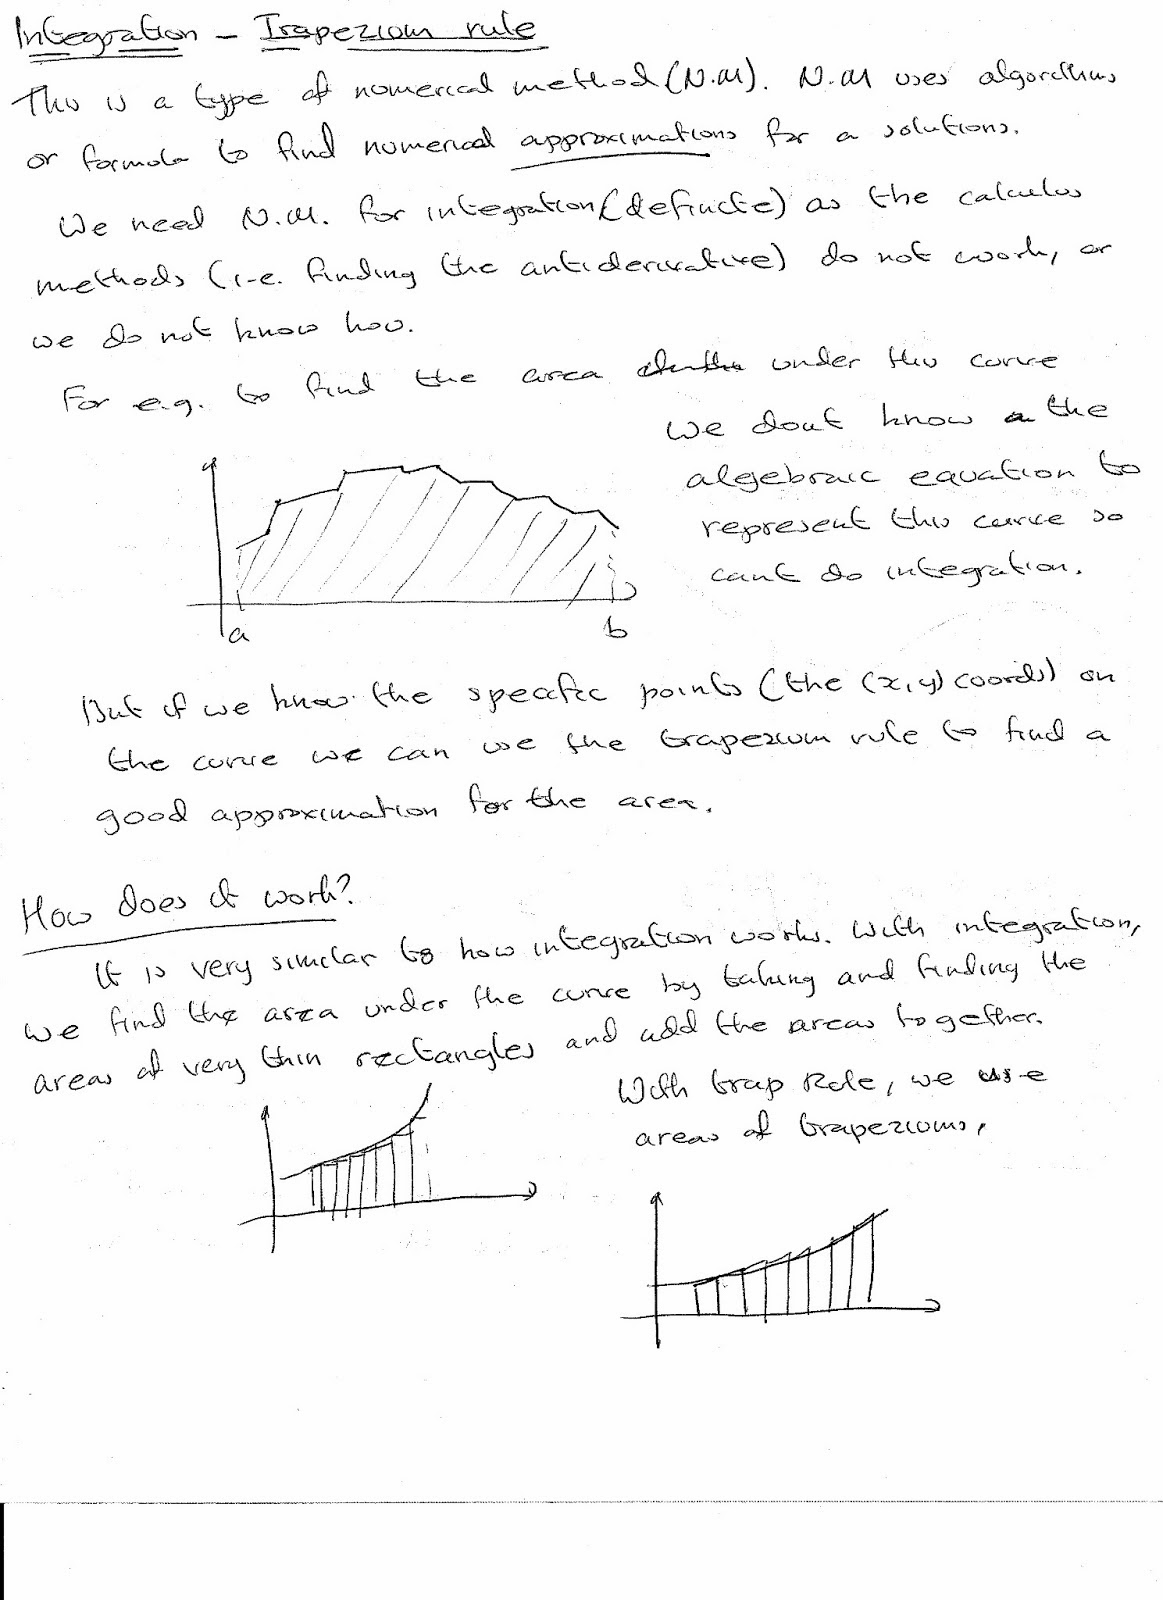 Integration - Trapezium rule
This is a type of numerical method (N.M). N.M uses algorithms
or formula to find numerical approximations for a solutions.
We need N.M. for integration (definite) as the calculus
methods (i.e. finding the antiderivative) do not work, or
we do not know how.
For e.g. to find the area under this curve
We dont know the
algebraic equation to
represent this curve so
cant do integration.
a
b
But if we know the specific points (the (x,y) coords) on
the curve we can use the trapezium rule to find a
good approximation for the area.
How does it work?
It is very similar to how integration works. With integration,
we find the area under the curve by taking and finding the
areas of very thin rectangles and add the areas together.
With trap Rule, we use
areas of trapeziums.